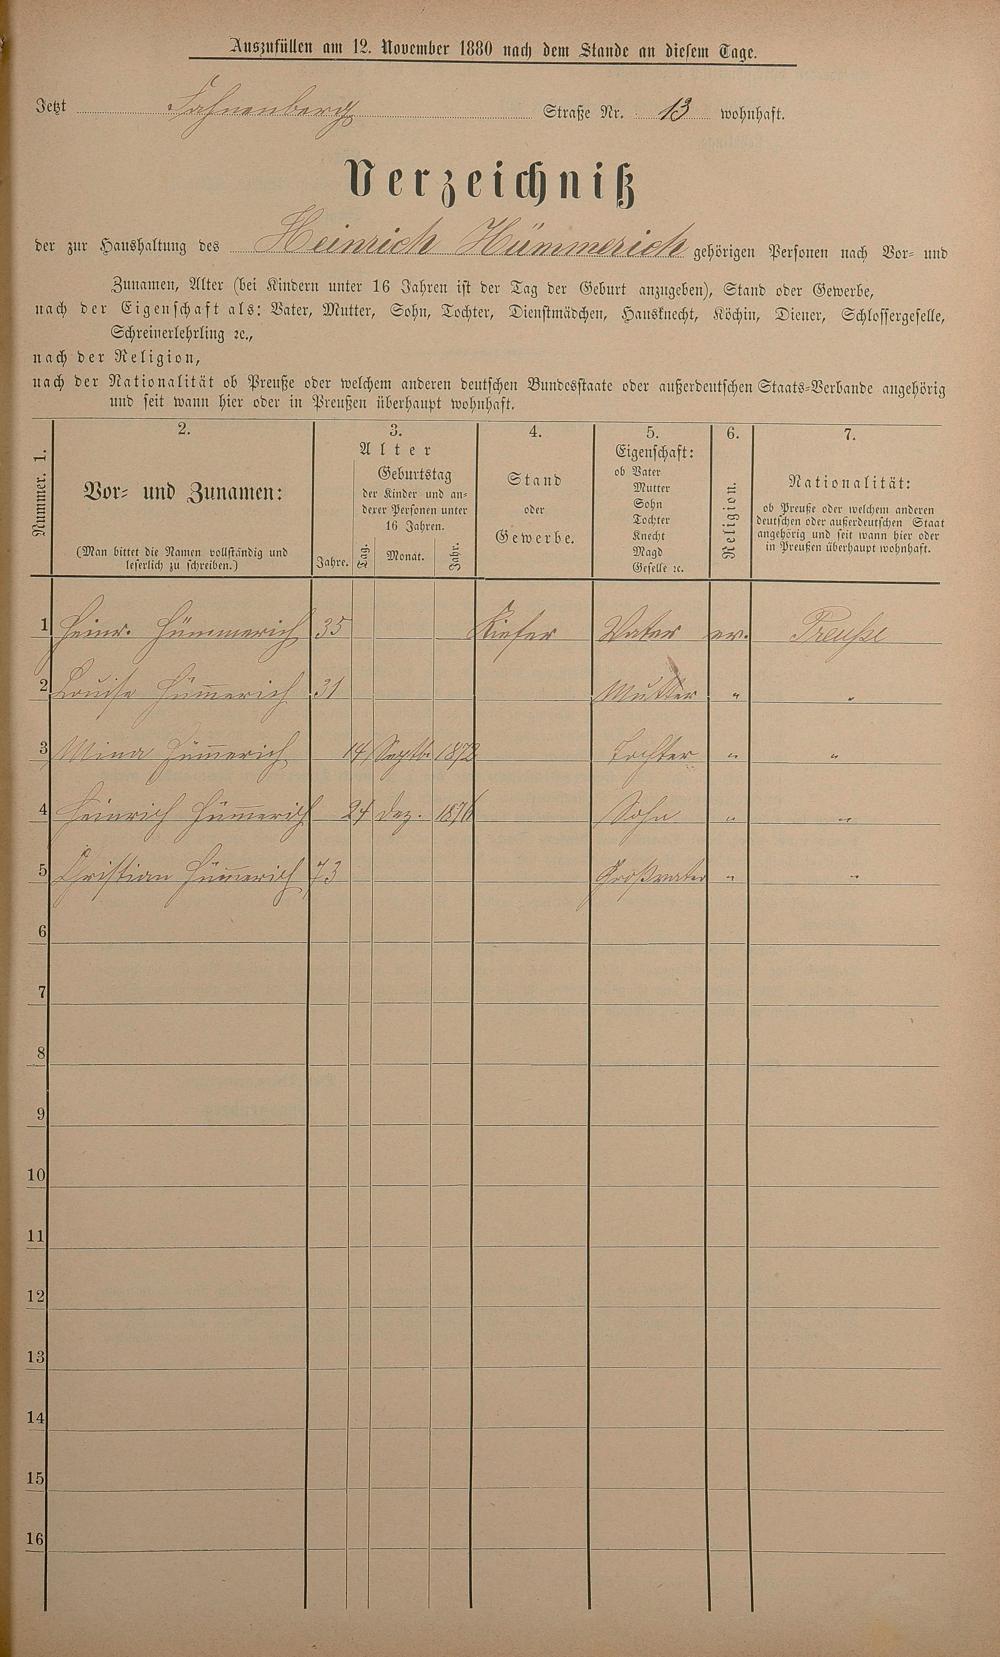 Auszufüllen am 12. November 1880 nach dem Stande an diesem Tage.
Jetzt Fahnenberg Straße Nr. 13 wohnhaft.
Verzeichniß
der zur Haushaltung des Heinrich Hümmerich gehörigen Personen nach Vor- und
Zunamen, Alter (bei Kindern unter 16 Jahren ist der Tag der Geburt anzugeben), Stand oder Gewerbe,
nach der Eigenschaft als: Vater, Mutter, Sohn, Tochter, Dienstmädchen, Hausknecht, Köchin, Diener, Schlossergeselle,
Schreinerlehrling ꝛc.,
nach der Religion,
nach der Nationalität ob Preuße oder welchem anderen deutschen Bundesstaate oder außerdeutschen Staats-Verbande angehörig
und seit wann hier oder in Preußen überhaupt wohnhaft.
Nummer. 1.
2.
Vor- und Zunamen:
(Man bittet die Namen vollständig und
leserlich zu schreiben.)
3.
Alter
Jahre.
Geburtstag
der Kinder und an-
derer Personen unter
16 Jahren.
Tag. Monat. Jahr.
4.
Stand
oder
Gewerbe.
5.
Eigenschaft:
ob Vater
Mutter
Sohn
Tochter
Knecht
Magd
Geselle ꝛc.
6.
Religion.
7.
Nationalität:
ob Preuße oder welchem anderen
deutschen oder außerdeutschen Staat
angehörig und seit wann hier oder
in Preußen überhaupt wohnhaft.
1 Heinr. Hümmerich 35 Kiefer Vater ev. Preuße
2 Louise Hüm̅erich 31 Mutter " "
3 Mina Hüm̅erich 14 Septb. 1872 Tochter " "
4 Heinrich Hüm̅erich 24 Dez. 1876 Sohn " "
5 Christian Hüm̅erich 73 Großvater " "
6
7
8
9
10
11
12
13
14
15
16